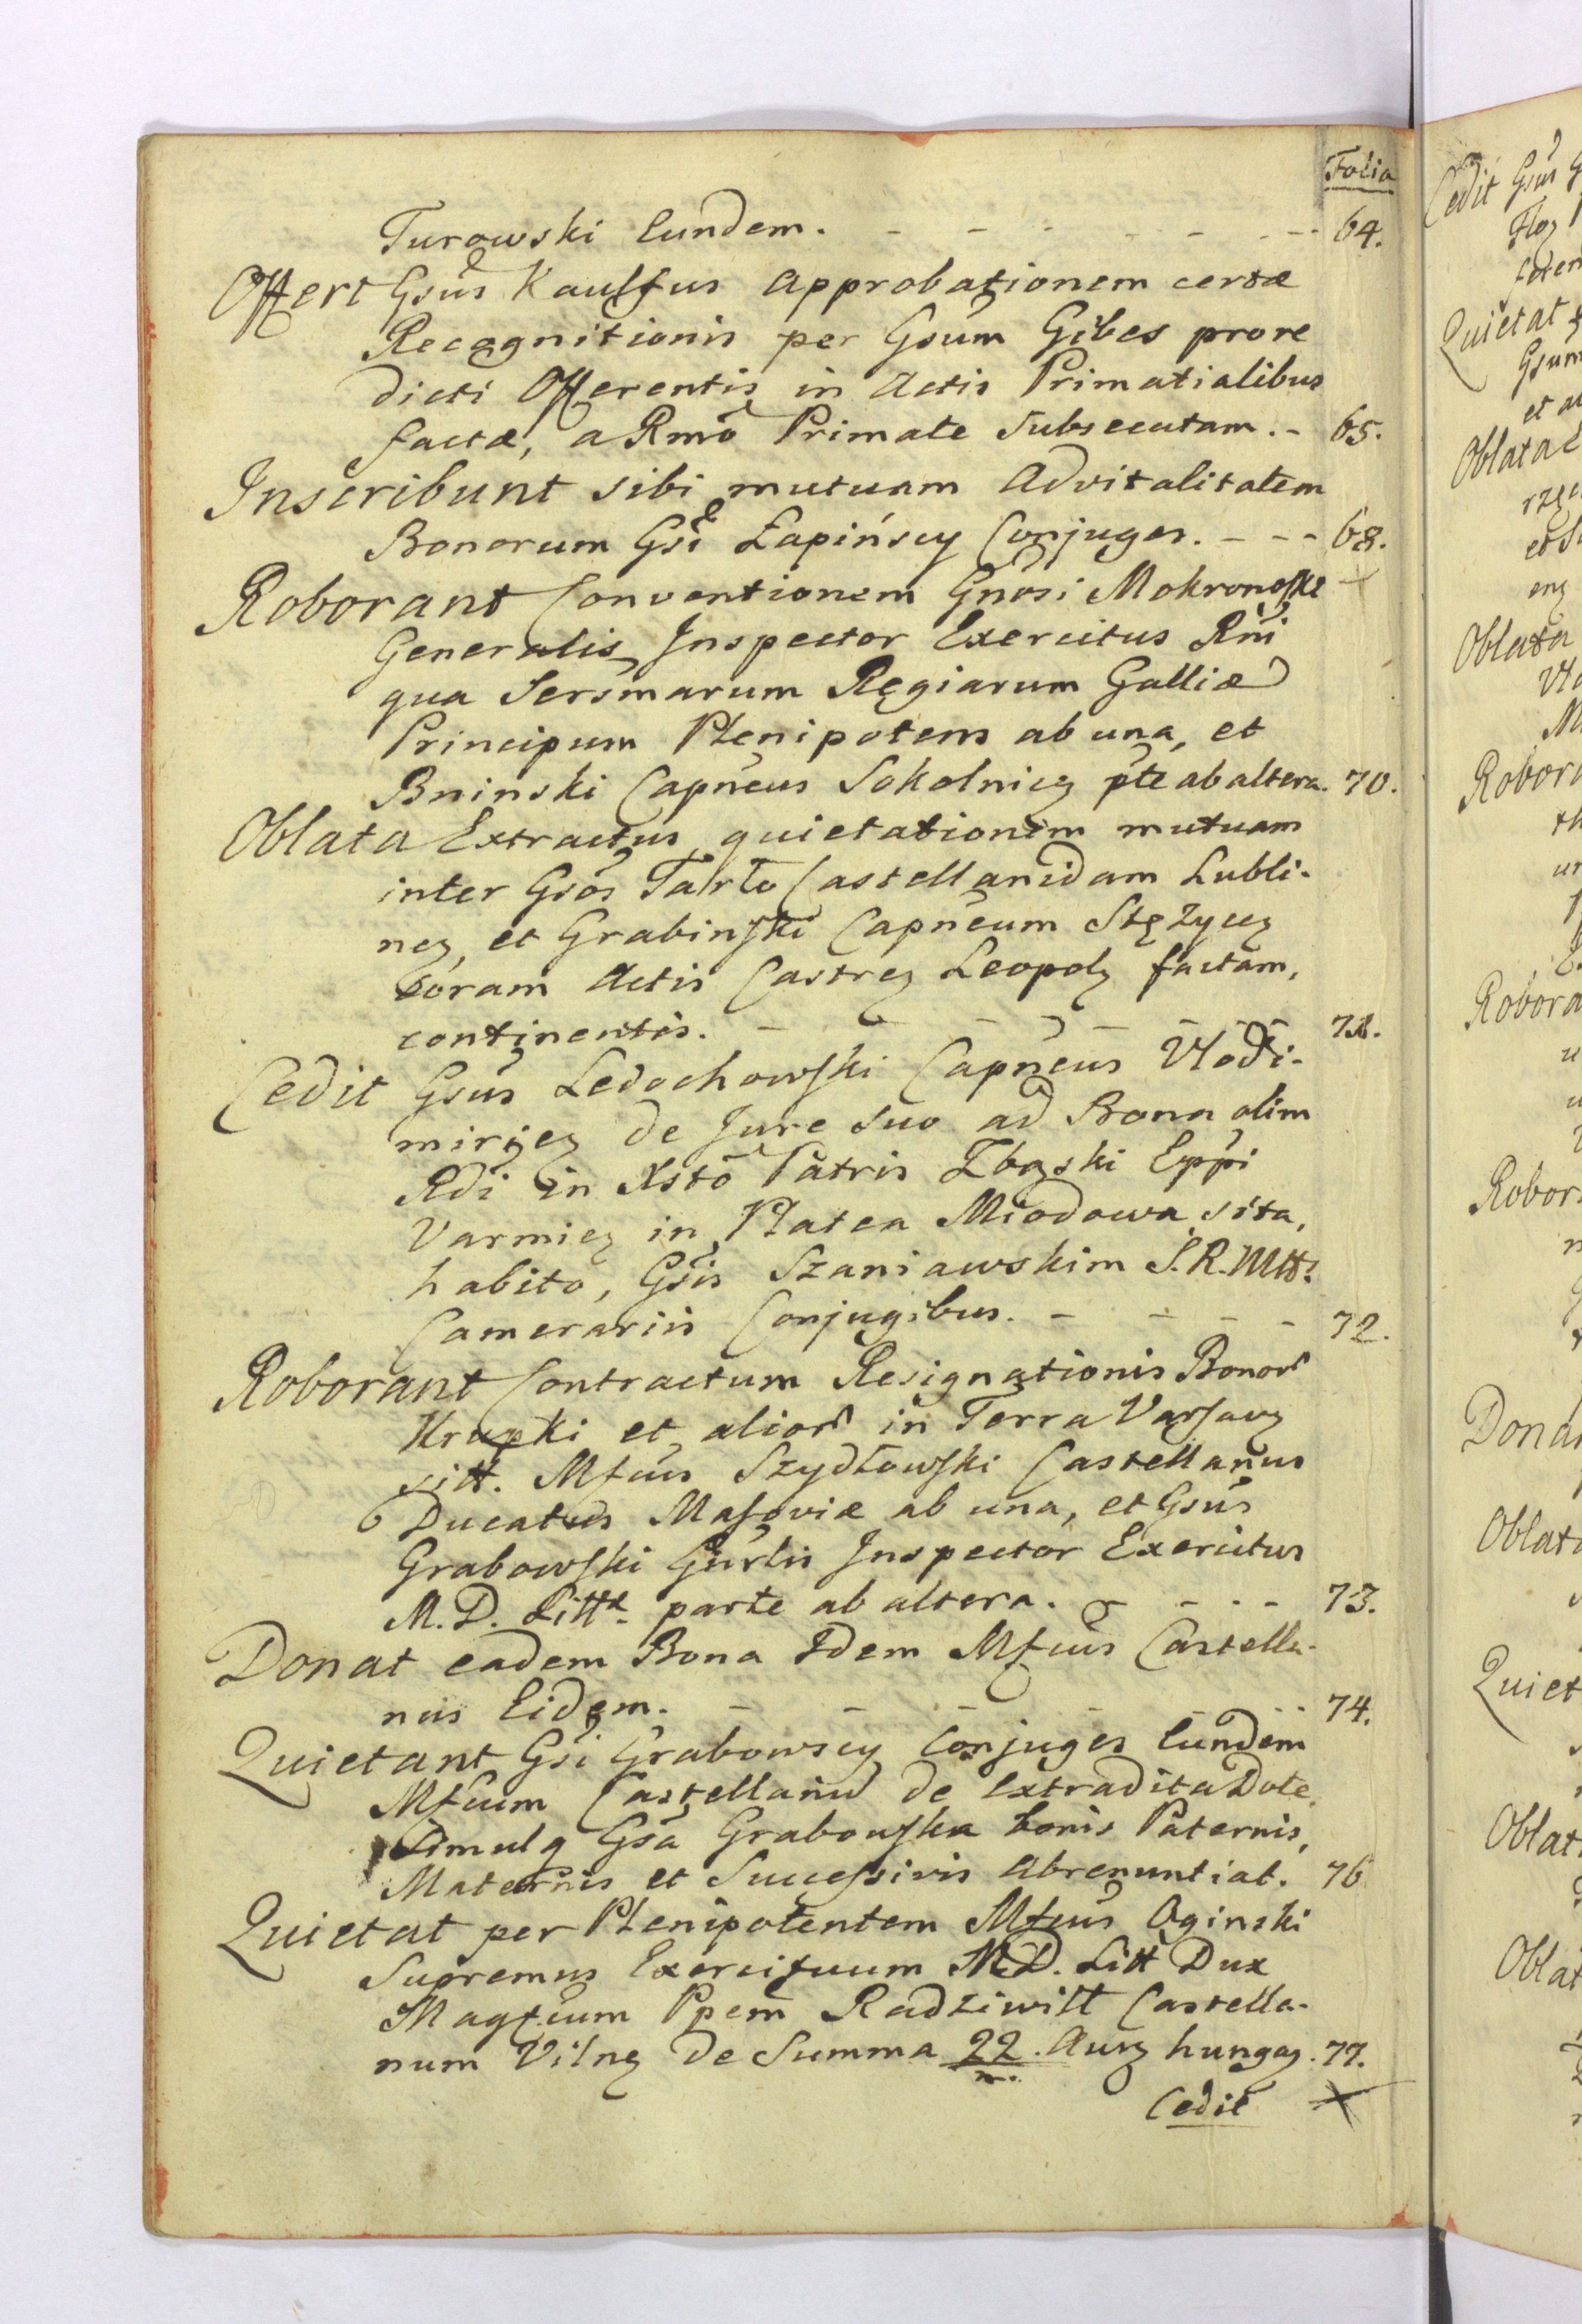 Folia
Turowski Eundem. - - - - - - - 64.
Offert Gsus Kaulfus Approbationem certæ
Recognitionis per Gsum Gibes prore
dicti Offerentis in Actis Primatialibus
factæ, a Rmo Primate Subsecutam. - 65.
Inscribunt sibi mutuam Advitalitatem
Bonorum Gsi Łapińscy Conjuges. - - - 68.
Roborant Conventionem Gnosi Mokronoski
Generalis Inspector Exercitus Rni
qua Sersmarum Regiarum Galliæ
Principum Plenipotens ab una, et
Bninski Capneus Sokolnicz pte ab altera. 70.
Oblata Extractus quietationem mutuam
inter Gsos Tarło Castellanidam Lubli-
nez, et Grabinski Capneum Stężycz
coram Actis Castrez Leopolz factam,
continentis. - - - - - - - 71.
Cedit Gsus Ledochowski Capneus Vlodi-
mirjez de Jure suo ad Bona olim
Rdi in Xsto Patris Zbąski Eppi
Varmicz in Platea Miodowa sita,
habito, Gsis Szaniawskim S. R. Mtt:
Camerariis Conjugibus. - - - - 72.
Roborant Contractum Resignationis Bonor
Krupki et alior in Terra Varsavz
sitt. Mfcus Szydłowski Castellanus
Ducatus Masoviæ ab una, et Gsus
Grabowski Gnrlis Inspector Exercitus
M. D. Litt. parte ab altera. - - - - 73.
Donat eadem Bona Idem Mfcus Castella-
nus Eidem. - - - - - - - 74.
Quietant Gsi Grabowscy Conjuges Eundem
Mfcum Castellanu de extradita Dote
Simulq Gsa Grabowska bonis Paternis,
Maternis et Successivis Abrenuntiat. 76
Quietat per Plenipotentem Mfcus Oginski
Supremus Exercituum M.D. Litt Dux
Magfcum Ppem Radziwiłł Castella-
num Vilnz de Summa 22. Aurz hungaz. 77.
m.
Cedit
Cedit Gsus
Quietat
Gsum
et
Oblata
Oblata
Robor
Robora
Robor
Dona
Oblat
Quiet
Oblat
Oblat